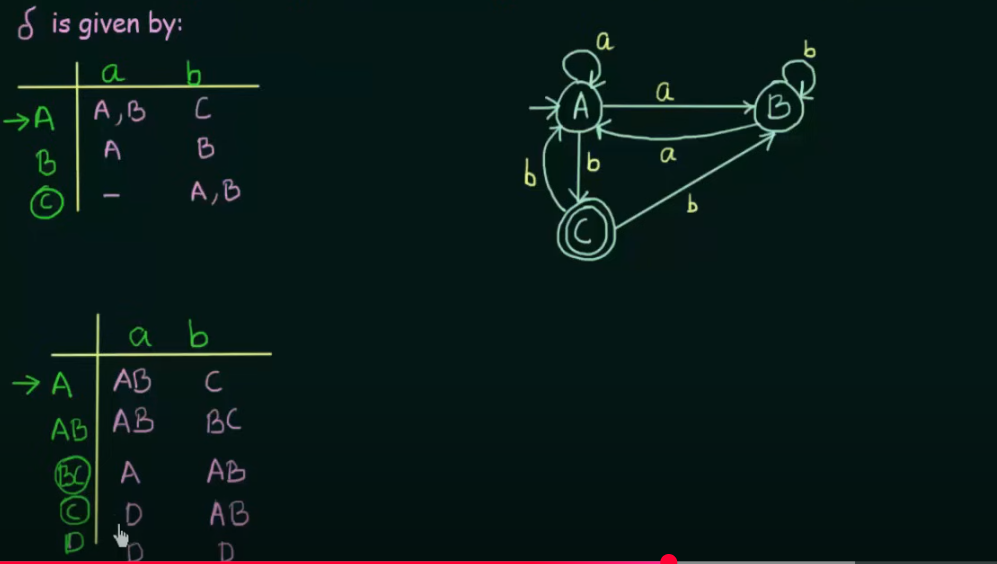 δ is given by:
a b
→A A,B C
B A B
C – A,B
a
b
A
a
B
b
a
b
b
C
a b
→A AB C
AB AB BC
BC A AB
C D AB
D D D